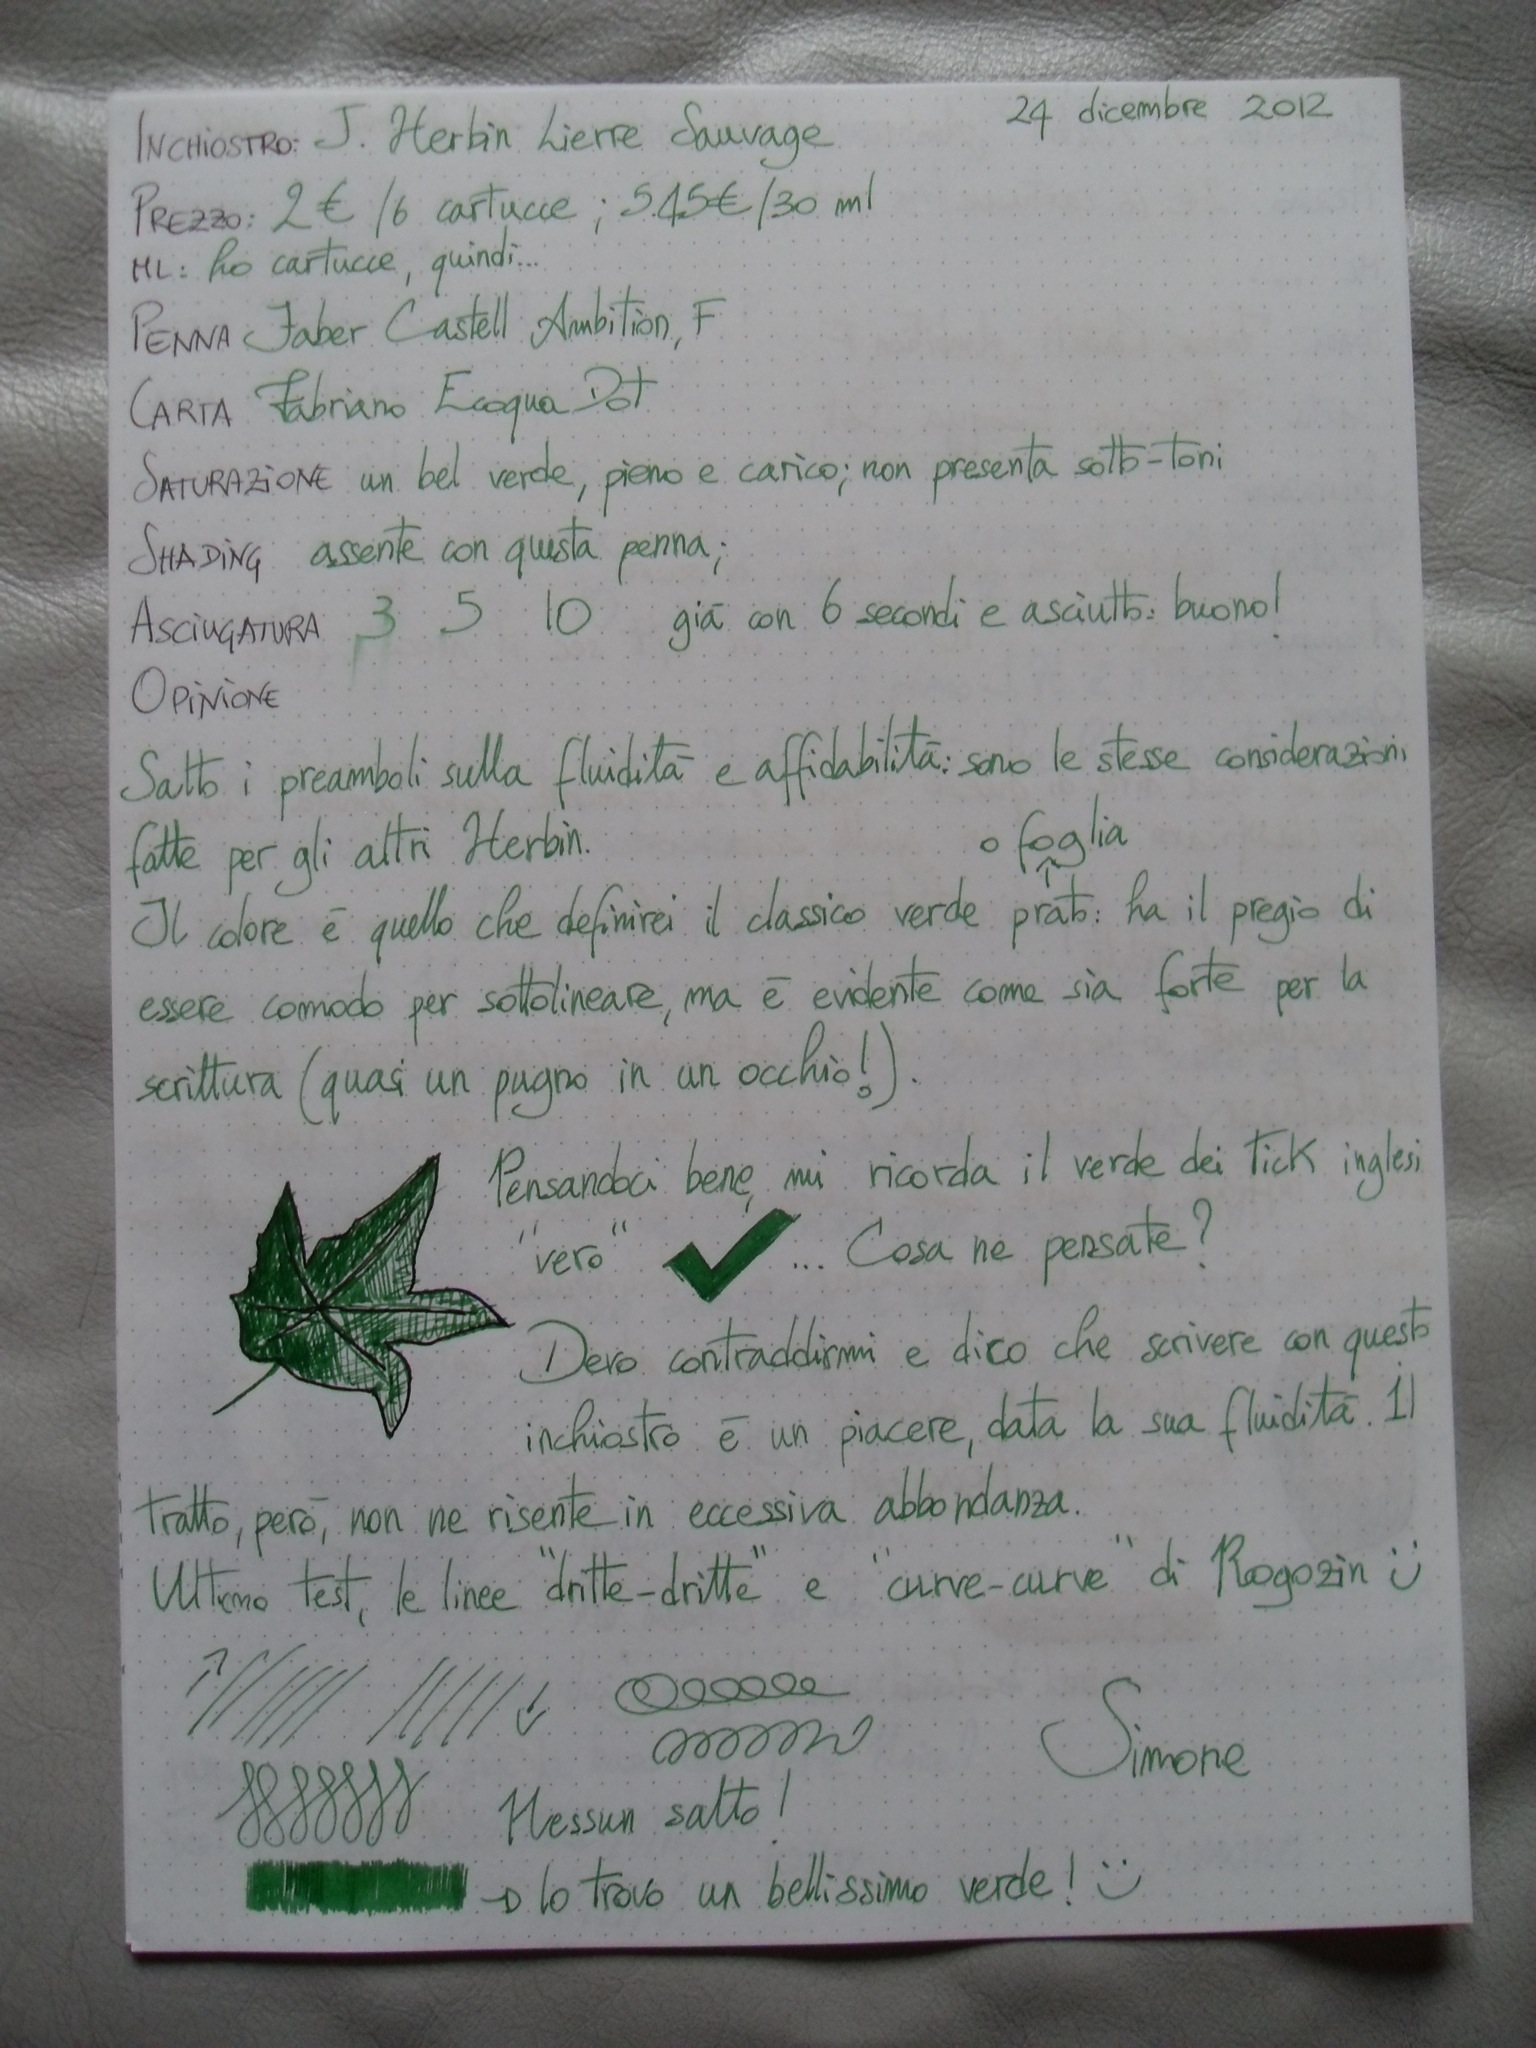 24 dicembre 2012
INCHIOSTRO: J. Herbin Lierre Sauvage
PREZZO: 2€ /6 cartucce ; 5.45€/30 ml
ML: ho cartucce, quindi...
PENNA Faber Castell Ambition, F
CARTA Fabriano EcoquaDot
SATURAZIONE un bel verde, pieno e carico; non presenta sotto-toni
SHADING assente con questa penna;
ASCIUGATURA 3 5 10 già con 6 secondi e asciutto: buono!
OPINIONE
Salto i preamboli sulla fluidità e affidabilità: sono le stesse considerazioni
fatte per gli altri Herbin.
o foglia
Il colore è quello che definirei il classico verde prato: ha il pregio di
essere comodo per sottolineare, ma è evidente come sia forte per la
scrittura (quasi un pugno in un occhio!).
Pensandoci bene, mi ricorda il verde dei tick inglesi
"vero" ✓ ... Cosa ne pensate?
Devo contraddirmi e dico che scrivere con questo
inchiostro è un piacere, data la sua fluidità. Il
tratto, però, non ne risente in eccessiva abbondanza.
Ultimo test, le linee "dritte-dritte" e "curve-curve" di Rogozin :)
Simone
Nessun salto!
→ lo trovo un bellissimo verde! :)